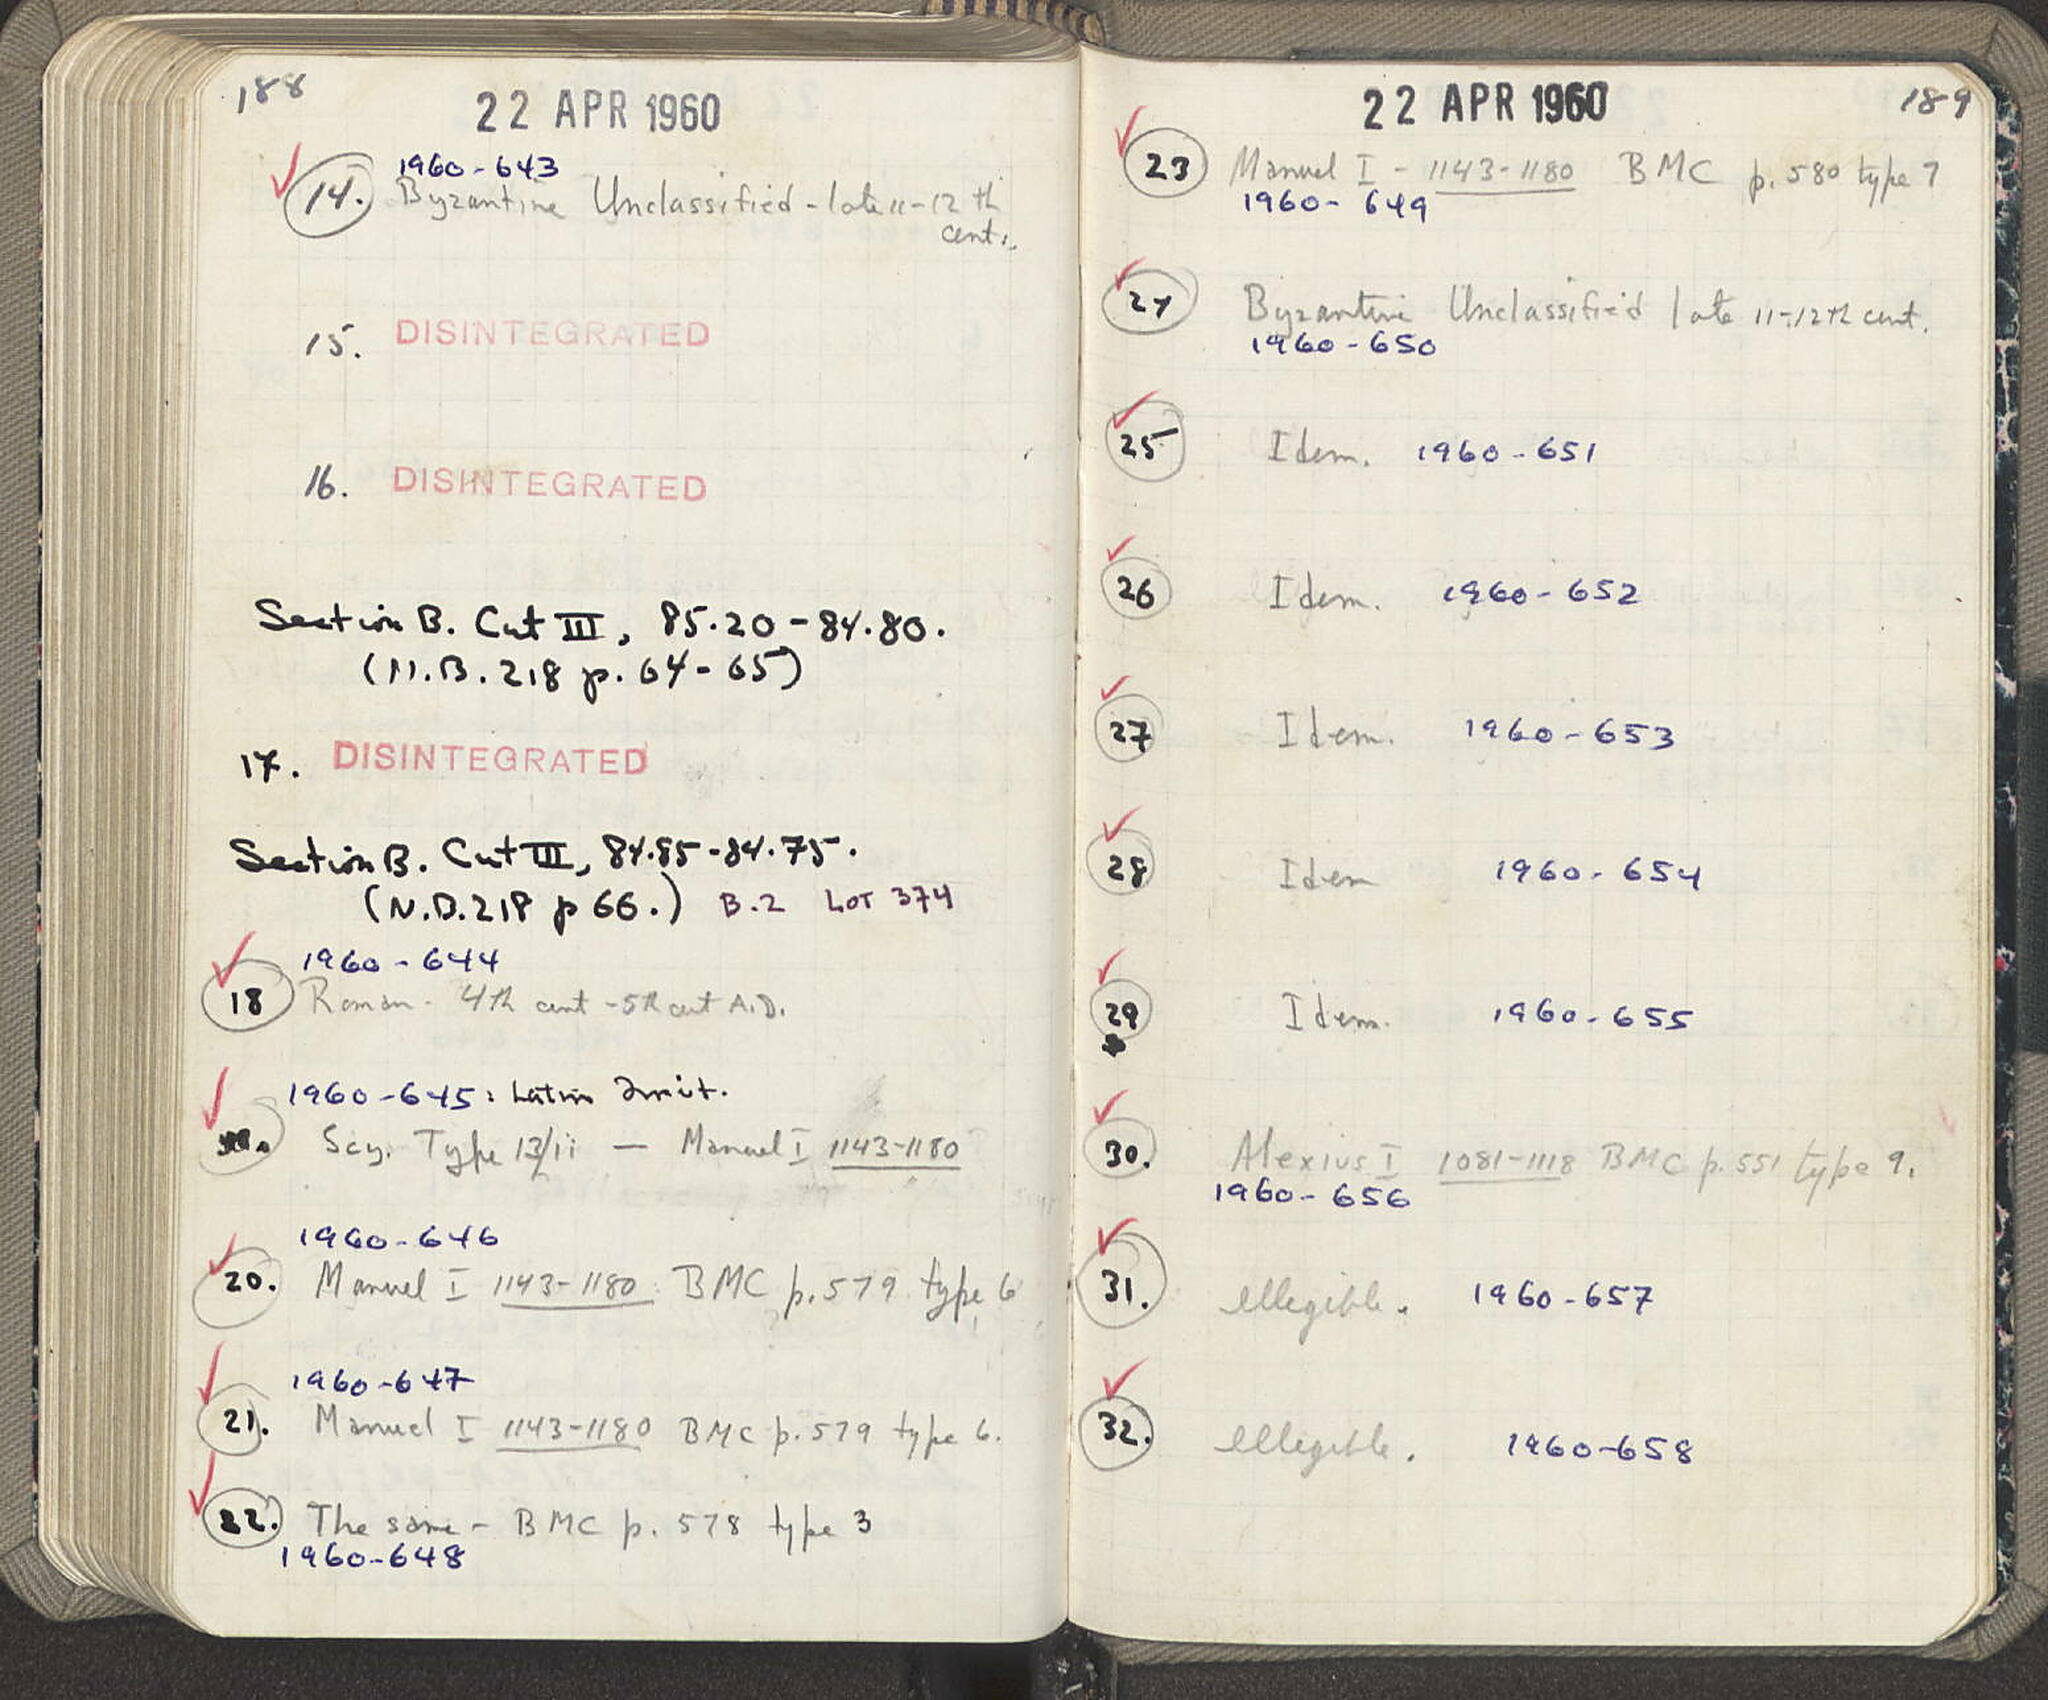 188
22 APR 1960
1960-643
14. Byzantine Unclassified - late 11-12th
cent.
15. DISINTEGRATED
16. DISINTEGRATED
Section B. Cut III, 85.20-84.80.
(N.B. 218 p. 64-65)
17. DISINTEGRATED
Section B. Cut III, 84.85-84.75.
(N.B. 218 p 66.) B.2 LOT 374
1960-644
18 Roman - 4th cent - 5th cent A.D.
1960-645: Latin Imit.
Scy. Type 13/ii — Manuel I 1143-1180
1960-646
20. Manuel I 1143-1180 BMC p. 579 type 6
1960-647
21. Manuel I 1143-1180 BMC p. 579 type 6.
22. The same - BMC p. 578 type 3
1960-648
22 APR 1960
189
23 Manuel I - 1143-1180 BMC p. 580 type 7
1960-649
24 Byzantine Unclassified late 11-12th cent.
1960-650
25 Idem. 1960-651
26 Idem. 1960-652
27 Idem. 1960-653
28 Idem 1960-654
29 Idem. 1960-655
30. Alexius I 1081-1118 BMC p. 551 type 9.
1960-656
31. illegible. 1960-657
32. illegible. 1960-658